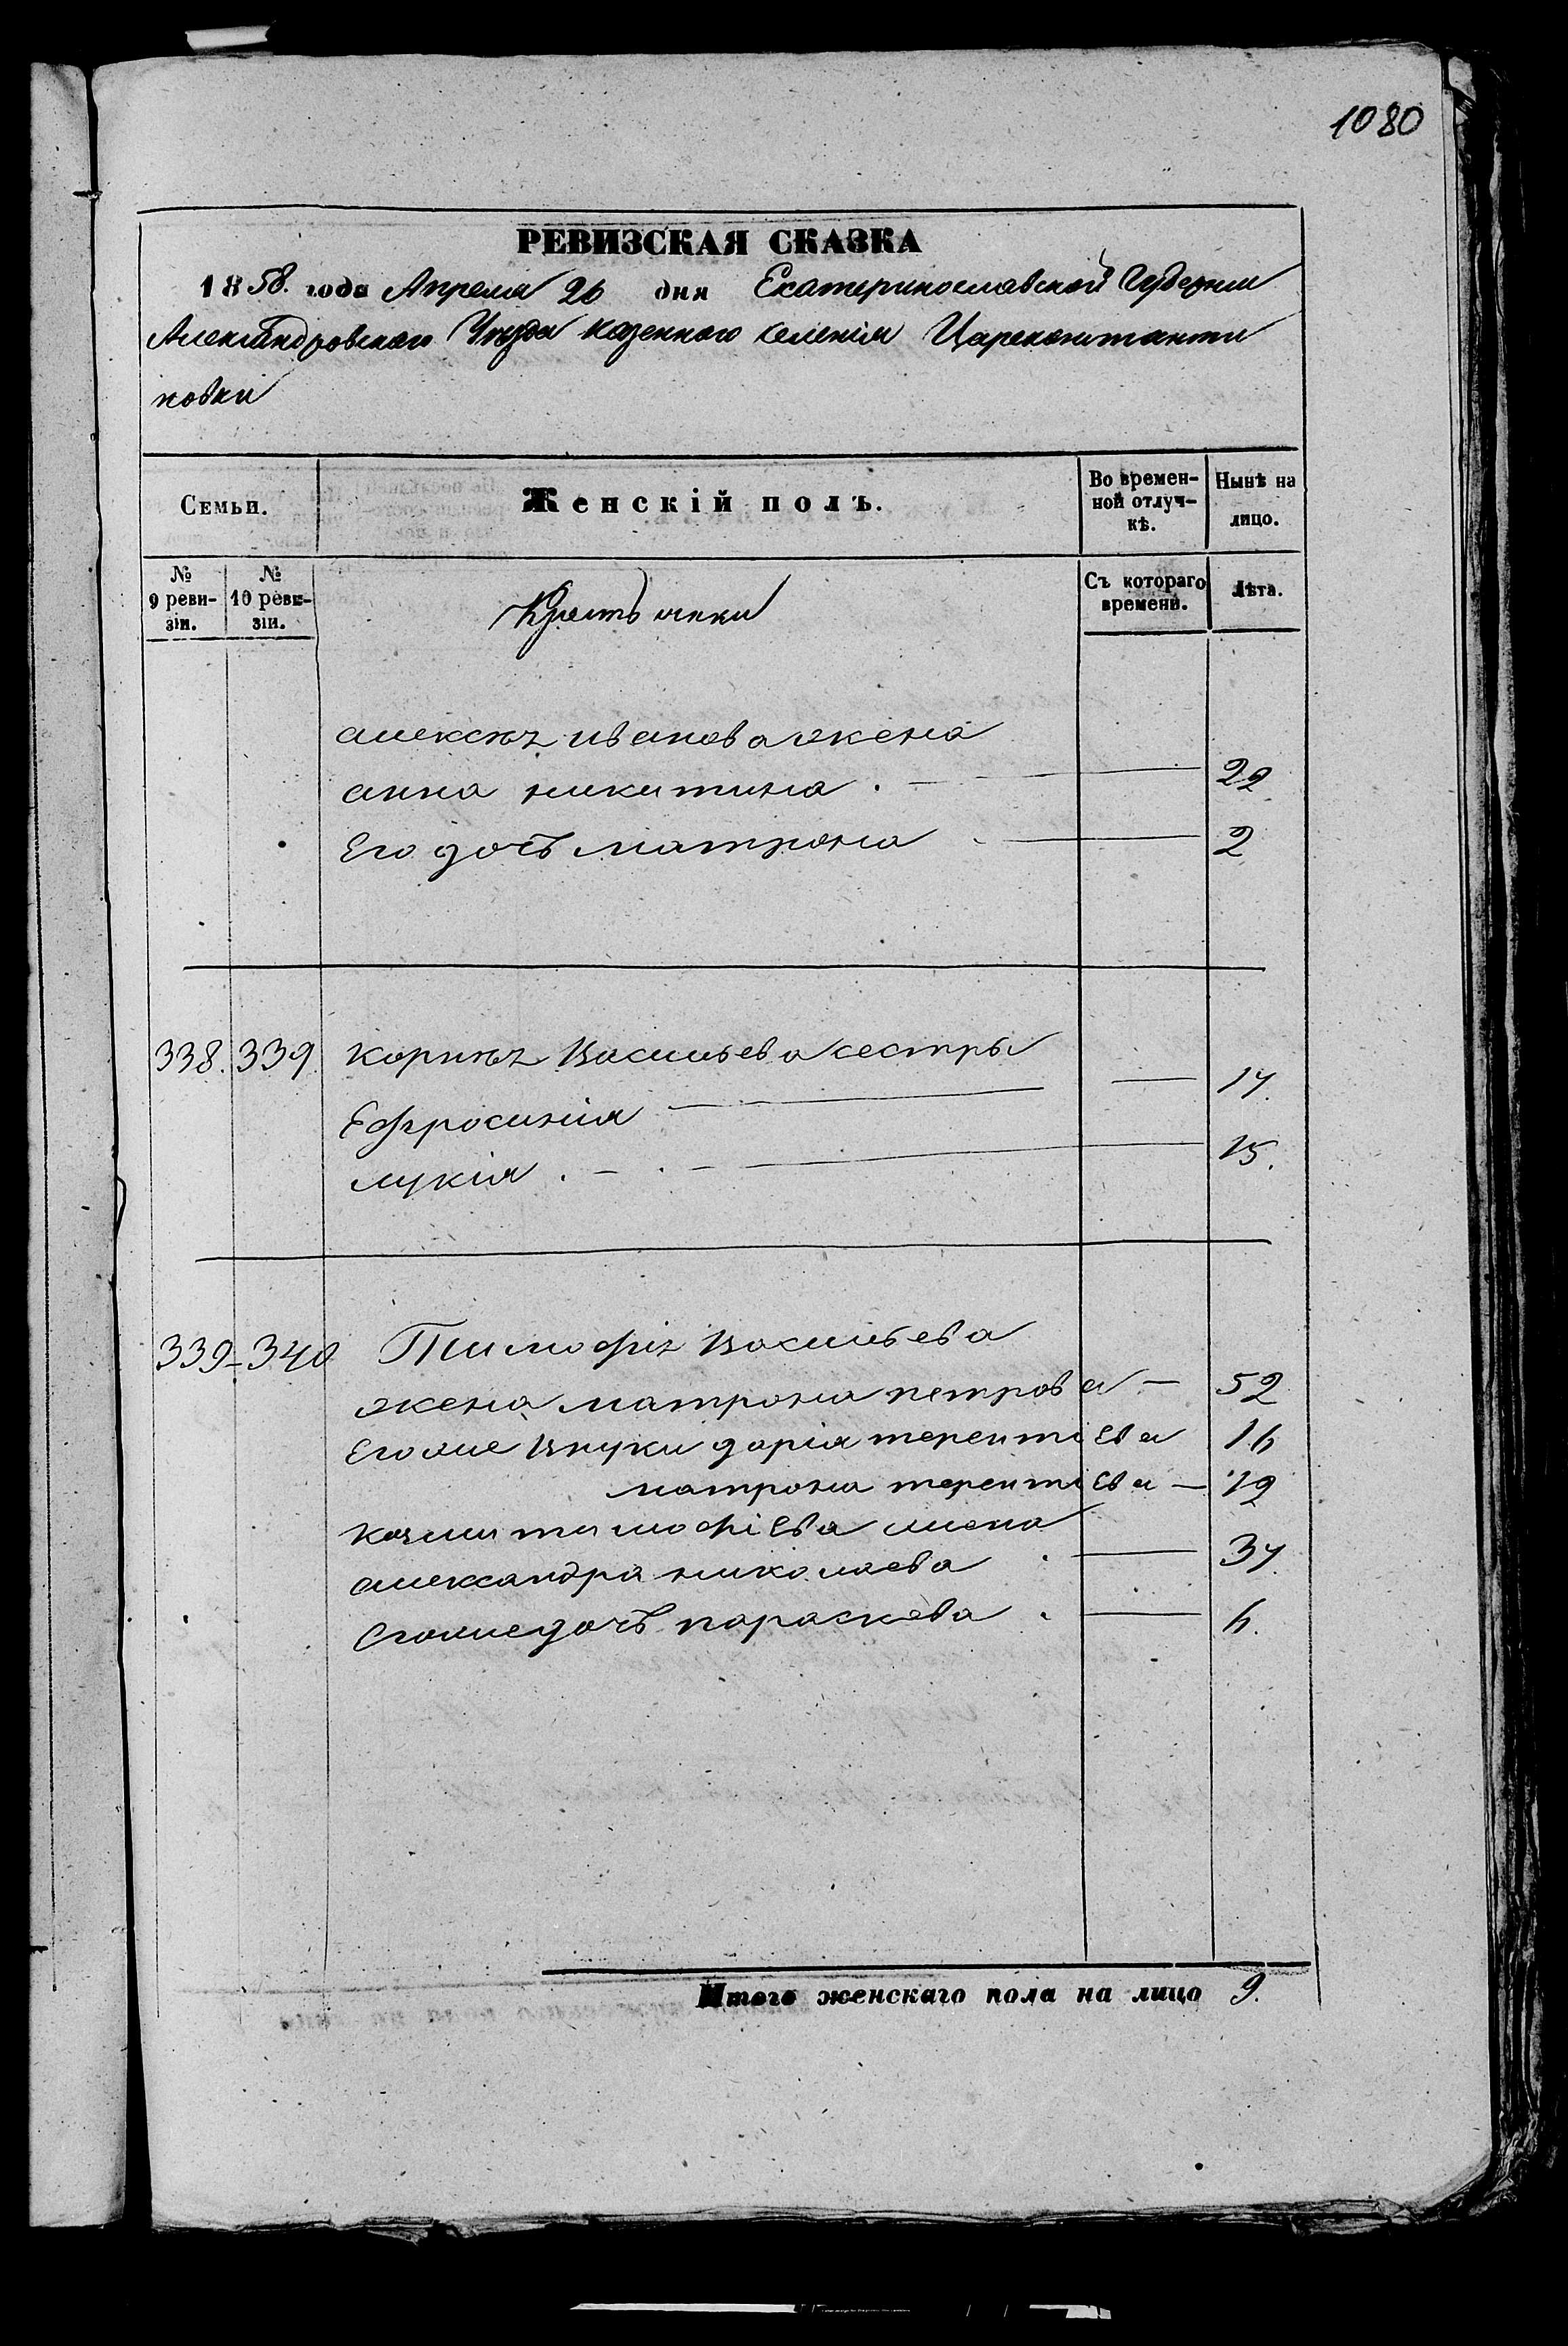 1080
РЕВИЗСКАЯ СКАЗКА
1858. года Апреля 26 дня Екатеринославской Губернии
Александровского Уезда казенного селенія Цареконстанти
новки
Семьи.
Женскій полъ.
Во времен-
ной отлуч-
кѣ.
Нынѣ на
лицо.
№
9 реви-
зіи.
№
10 реви-
зіи.
Крестьянки
Съ котораго
времени.
Лѣта.
алексѣя иванова жена
анна никитина . — 22
Его дочь матрона . — 2
338. 339 Васильева сестры
Ефросинія — — 17.
лукія . — . — 15.
339 - 340 Тимофія Васильева
жена матрона петрова — 52
Егоже внуки дарія терентіева 16
матрона терентіева — 12
козми тимофіева жена
александра николаева . — 37.
Егоже дочь параскева . — 6.
Итого женскаго пола на лицо 9.